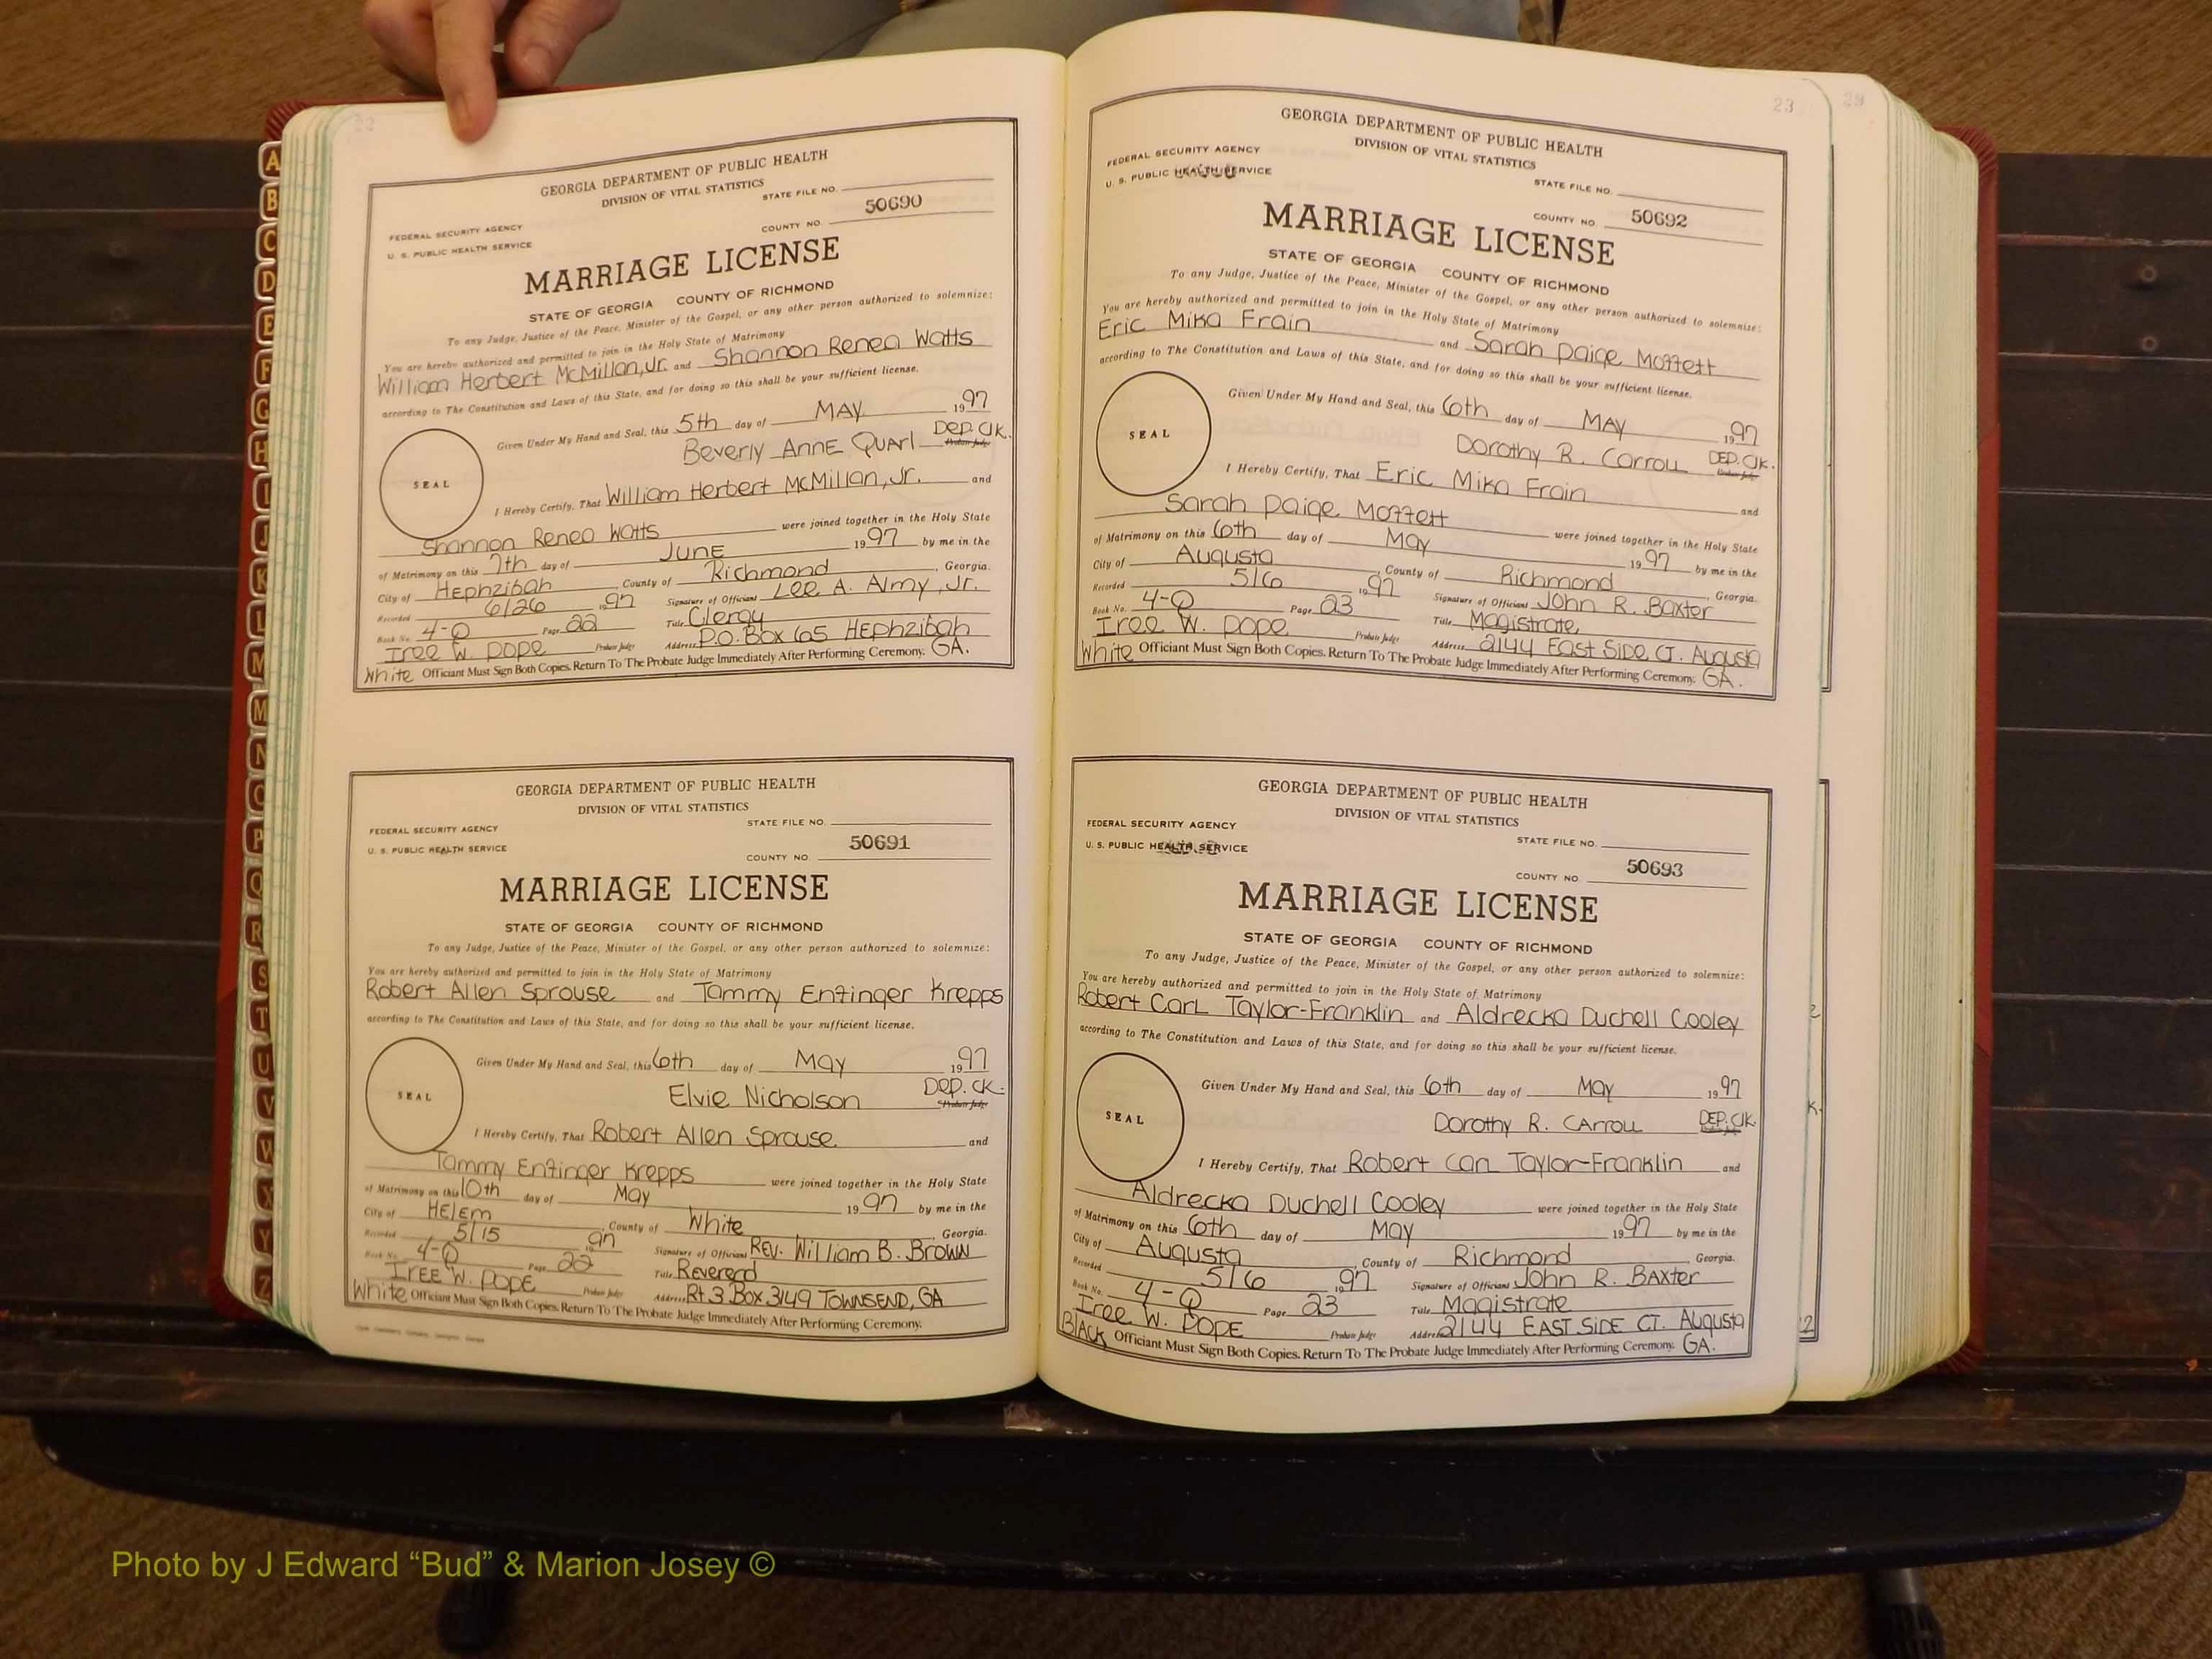 A
B
C
D
E
F
G
H
I
J
K
L
M
M
N
O
P
Q
R
S
T
U
V
W
X
Y
Z
22
GEORGIA DEPARTMENT OF PUBLIC HEALTH
DIVISION OF VITAL STATISTICS
STATE FILE NO.
FEDERAL SECURITY AGENCY
U. S. PUBLIC HEALTH SERVICE
COUNTY NO. 50690
MARRIAGE LICENSE
STATE OF GEORGIA COUNTY OF RICHMOND
To any Judge, Justice of the Peace, Minister of the Gospel, or any other person authorized to solemnize:
You are hereby authorized and permitted to join in the Holy State of Matrimony
William Herbert McMillan, Jr. and Shannon Renea Watts
according to The Constitution and Laws of this State, and for doing so this shall be your sufficient license.
Given Under My Hand and Seal, this 5th day of MAY 1997
Beverly Anne Quarl Dep. Clk. Probate Judge
SEAL
I Hereby Certify, That William Herbert McMillan, Jr. and
Shannon Renea Watts were joined together in the Holy State
of Matrimony on this 7th day of June 1997 by me in the
City of Hephzibah County of Richmond, Georgia.
Recorded 6/26 1997 Signature of Officiant Lee A. Almy, Jr.
Book No. 4-Q Page 22 Title Clergy
Iree W. Pope Probate Judge Address P.O. Box 65 Hephzibah
White Officiant Must Sign Both Copies. Return To The Probate Judge Immediately After Performing Ceremony. GA.
GEORGIA DEPARTMENT OF PUBLIC HEALTH
DIVISION OF VITAL STATISTICS
STATE FILE NO.
FEDERAL SECURITY AGENCY
U. S. PUBLIC HEALTH SERVICE
COUNTY NO. 50691
MARRIAGE LICENSE
STATE OF GEORGIA COUNTY OF RICHMOND
To any Judge, Justice of the Peace, Minister of the Gospel, or any other person authorized to solemnize:
You are hereby authorized and permitted to join in the Holy State of Matrimony
Robert Allen Sprouse and Tammy Enfinger Krepps
according to The Constitution and Laws of this State, and for doing so this shall be your sufficient license.
Given Under My Hand and Seal, this 6th day of May 1997
Elvie Nicholson Dep. Ck. Probate Judge
SEAL
I Hereby Certify, That Robert Allen Sprouse and
Tammy Enfinger Krepps were joined together in the Holy State
of Matrimony on this 10th day of May 1997 by me in the
City of Helem, County of White Georgia.
Recorded 5/15 1997 Signature of Officiant Rev. William B. Brown
Book No. 4-Q Page 22 Title Reverend
Iree W. Pope Probate Judge Address Rt 3 Box 3149 Townsend, GA
White Officiant Must Sign Both Copies. Return To The Probate Judge Immediately After Performing Ceremony.
23
29
GEORGIA DEPARTMENT OF PUBLIC HEALTH
DIVISION OF VITAL STATISTICS
FEDERAL SECURITY AGENCY
U. S. PUBLIC HEALTH SERVICE
STATE FILE NO.
COUNTY NO. 50692
MARRIAGE LICENSE
STATE OF GEORGIA COUNTY OF RICHMOND
To any Judge, Justice of the Peace, Minister of the Gospel, or any other person authorized to solemnize:
You are hereby authorized and permitted to join in the Holy State of Matrimony
Eric Mika Frain and Sarah Paige Moffett
according to The Constitution and Laws of this State, and for doing so this shall be your sufficient license.
Given Under My Hand and Seal, this 6th day of May 1997
Dorothy R. Carroll Dep. Clk. Probate Judge
SEAL
I Hereby Certify, That Eric Mika Frain and
Sarah Paige Moffett were joined together in the Holy State
of Matrimony on this 6th day of May 1997 by me in the
City of Augusta, County of Richmond, Georgia.
Recorded 5/6 1997 Signature of Officiant John R. Baxter
Book No. 4-Q Page 23 Title Magistrate
Iree W. Pope Probate Judge Address 2144 East Side Ct. Augusta
White Officiant Must Sign Both Copies. Return To The Probate Judge Immediately After Performing Ceremony. GA.
GEORGIA DEPARTMENT OF PUBLIC HEALTH
DIVISION OF VITAL STATISTICS
FEDERAL SECURITY AGENCY
U. S. PUBLIC HEALTH SERVICE
STATE FILE NO.
COUNTY NO. 50693
MARRIAGE LICENSE
STATE OF GEORGIA COUNTY OF RICHMOND
To any Judge, Justice of the Peace, Minister of the Gospel, or any other person authorized to solemnize:
You are hereby authorized and permitted to join in the Holy State of Matrimony
Robert Carl Taylor-Franklin and Aldrecka Duchell Cooley
according to The Constitution and Laws of this State, and for doing so this shall be your sufficient license.
Given Under My Hand and Seal, this 6th day of May 1997
Dorothy R. Carroll Dep. Clk.
SEAL
I Hereby Certify, That Robert Carl Taylor-Franklin and
Aldrecka Duchell Cooley were joined together in the Holy State
of Matrimony on this 6th day of May 1997 by me in the
City of Augusta, County of Richmond Georgia.
Recorded 5/6 1997 Signature of Officiant John R. Baxter
Book No. 4-Q Page 23 Title Magistrate
Iree W. Pope Probate Judge Address 2144 East Side Ct. Augusta
Black Officiant Must Sign Both Copies. Return To The Probate Judge Immediately After Performing Ceremony. GA.
Photo by J Edward “Bud” & Marion Josey ©